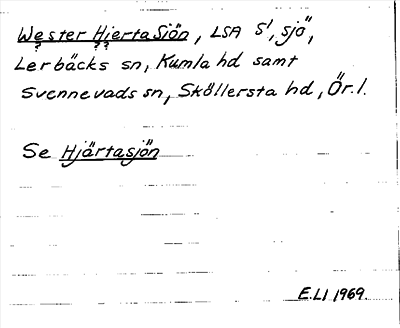 Wester Hjerta Siön, LSA S1, sjö,
? ??
Lerbäcks sn, Kumla hd samt
Svennevads sn, Sköllersta hd, Ör. l.
Se Hjärtasjön
E.LI 1969.